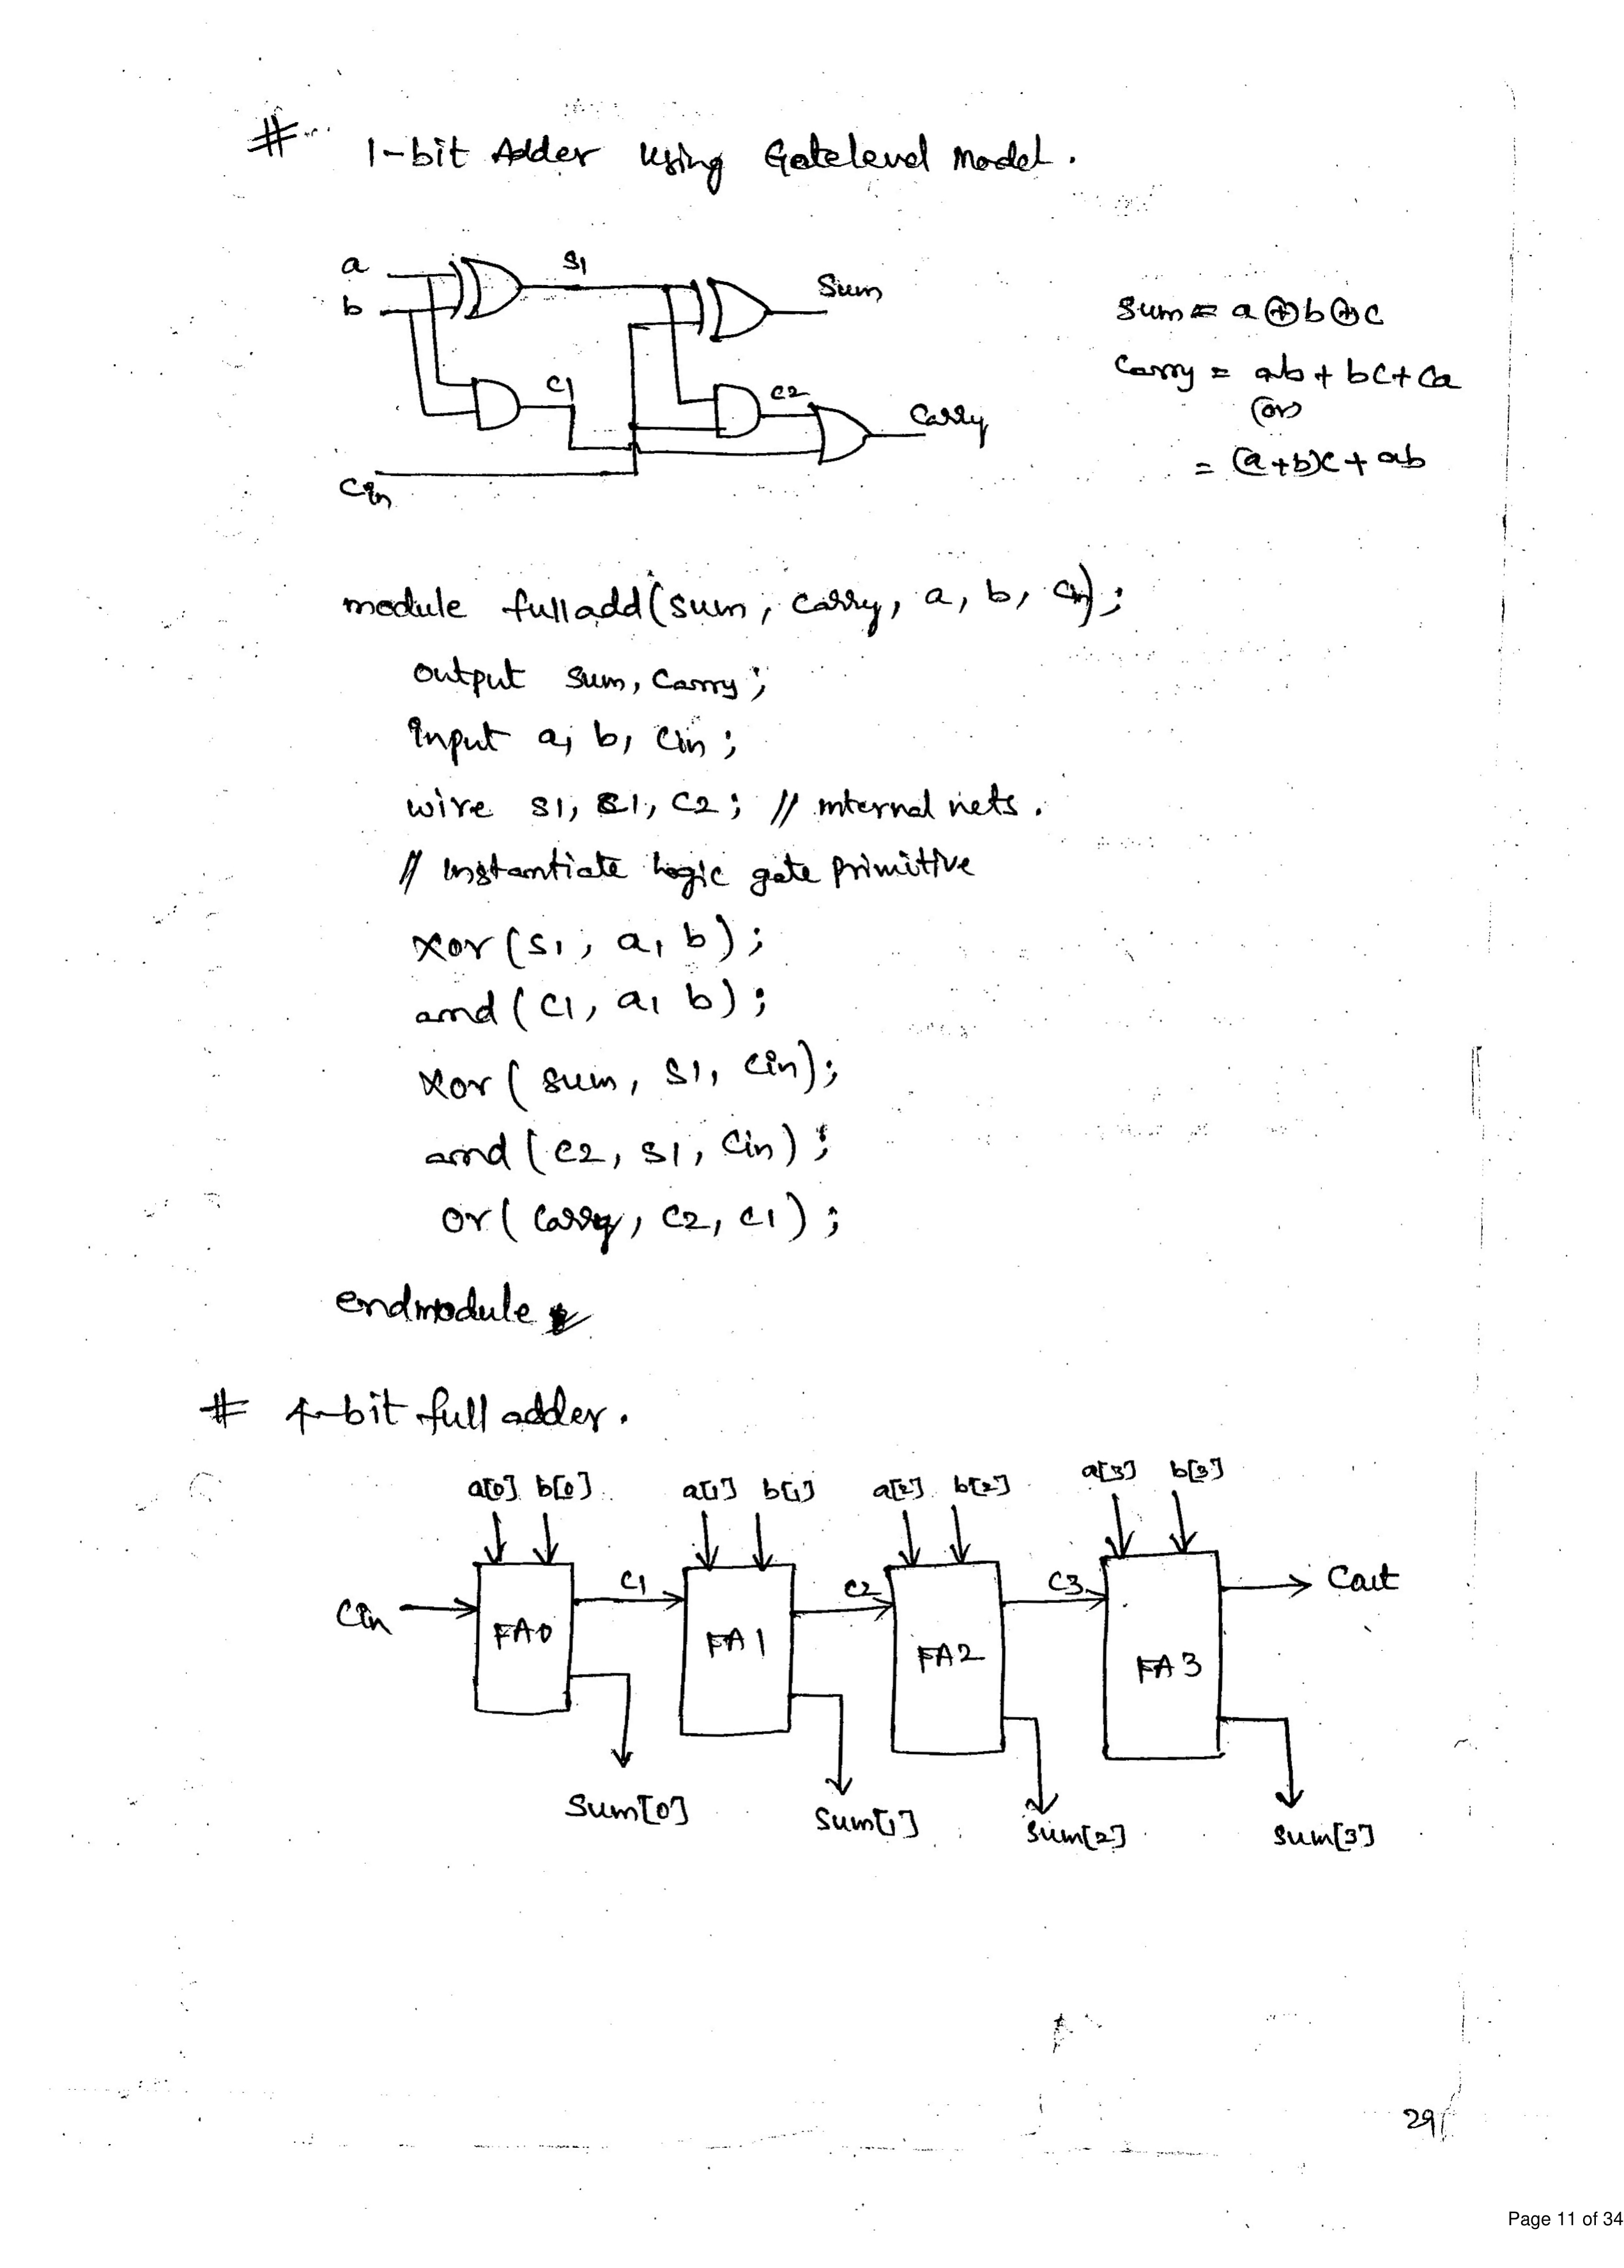 # 1-bit Adder using Gatelevel Model.
a
b
S1
Sum
C1
C2
Carry
Cin
Sum = a⊕b⊕c
Carry = ab + bc + ca
(or)
= (a+b)c + ab
module fulladd(sum, carry, a, b, cin);
output sum, carry;
input a, b, cin;
wire s1, c1, c2; // internal nets.
// Instantiate logic gate primitive
xor (s1, a, b);
and (c1, a, b);
xor ( sum, s1, cin);
and ( c2, s1, cin);
or ( carry, c2, c1);
endmodule
# 4-bit full adder.
a[0] b[0] a[1] b[1] a[2] b[2] a[3] b[3]
Cin FA0 C1 FA1 C2 FA2 C3 FA3 Cout
Sum[0] Sum[1] Sum[2] Sum[3]
29
Page 11 of 34